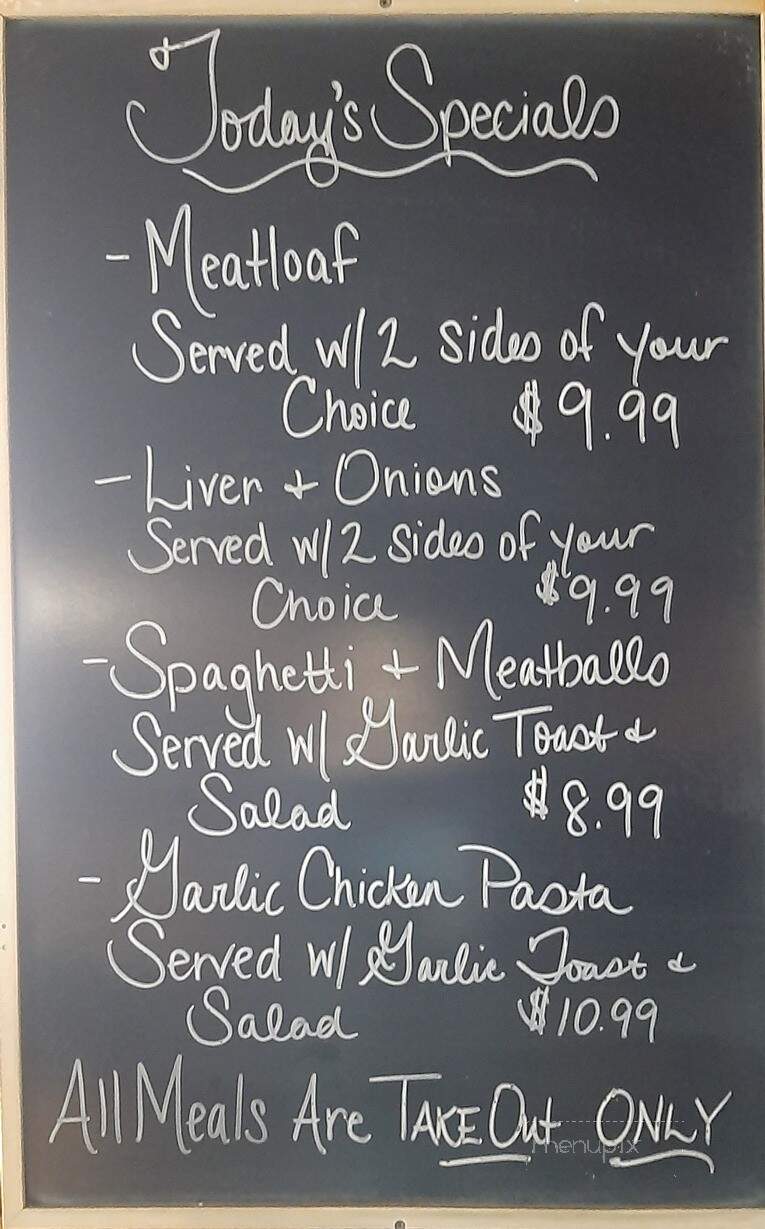 Today's Specials
- Meatloaf
Served w/ 2 sides of your
Choice $9.99
- Liver + Onions
Served w/ 2 sides of your
Choice $9.99
- Spaghetti + Meatballs
Served w/ Garlic Toast &
Salad $8.99
- Garlic Chicken Pasta
Served w/ Garlic Toast &
Salad $10.99
All Meals Are TAKE Out ONLY
menupix